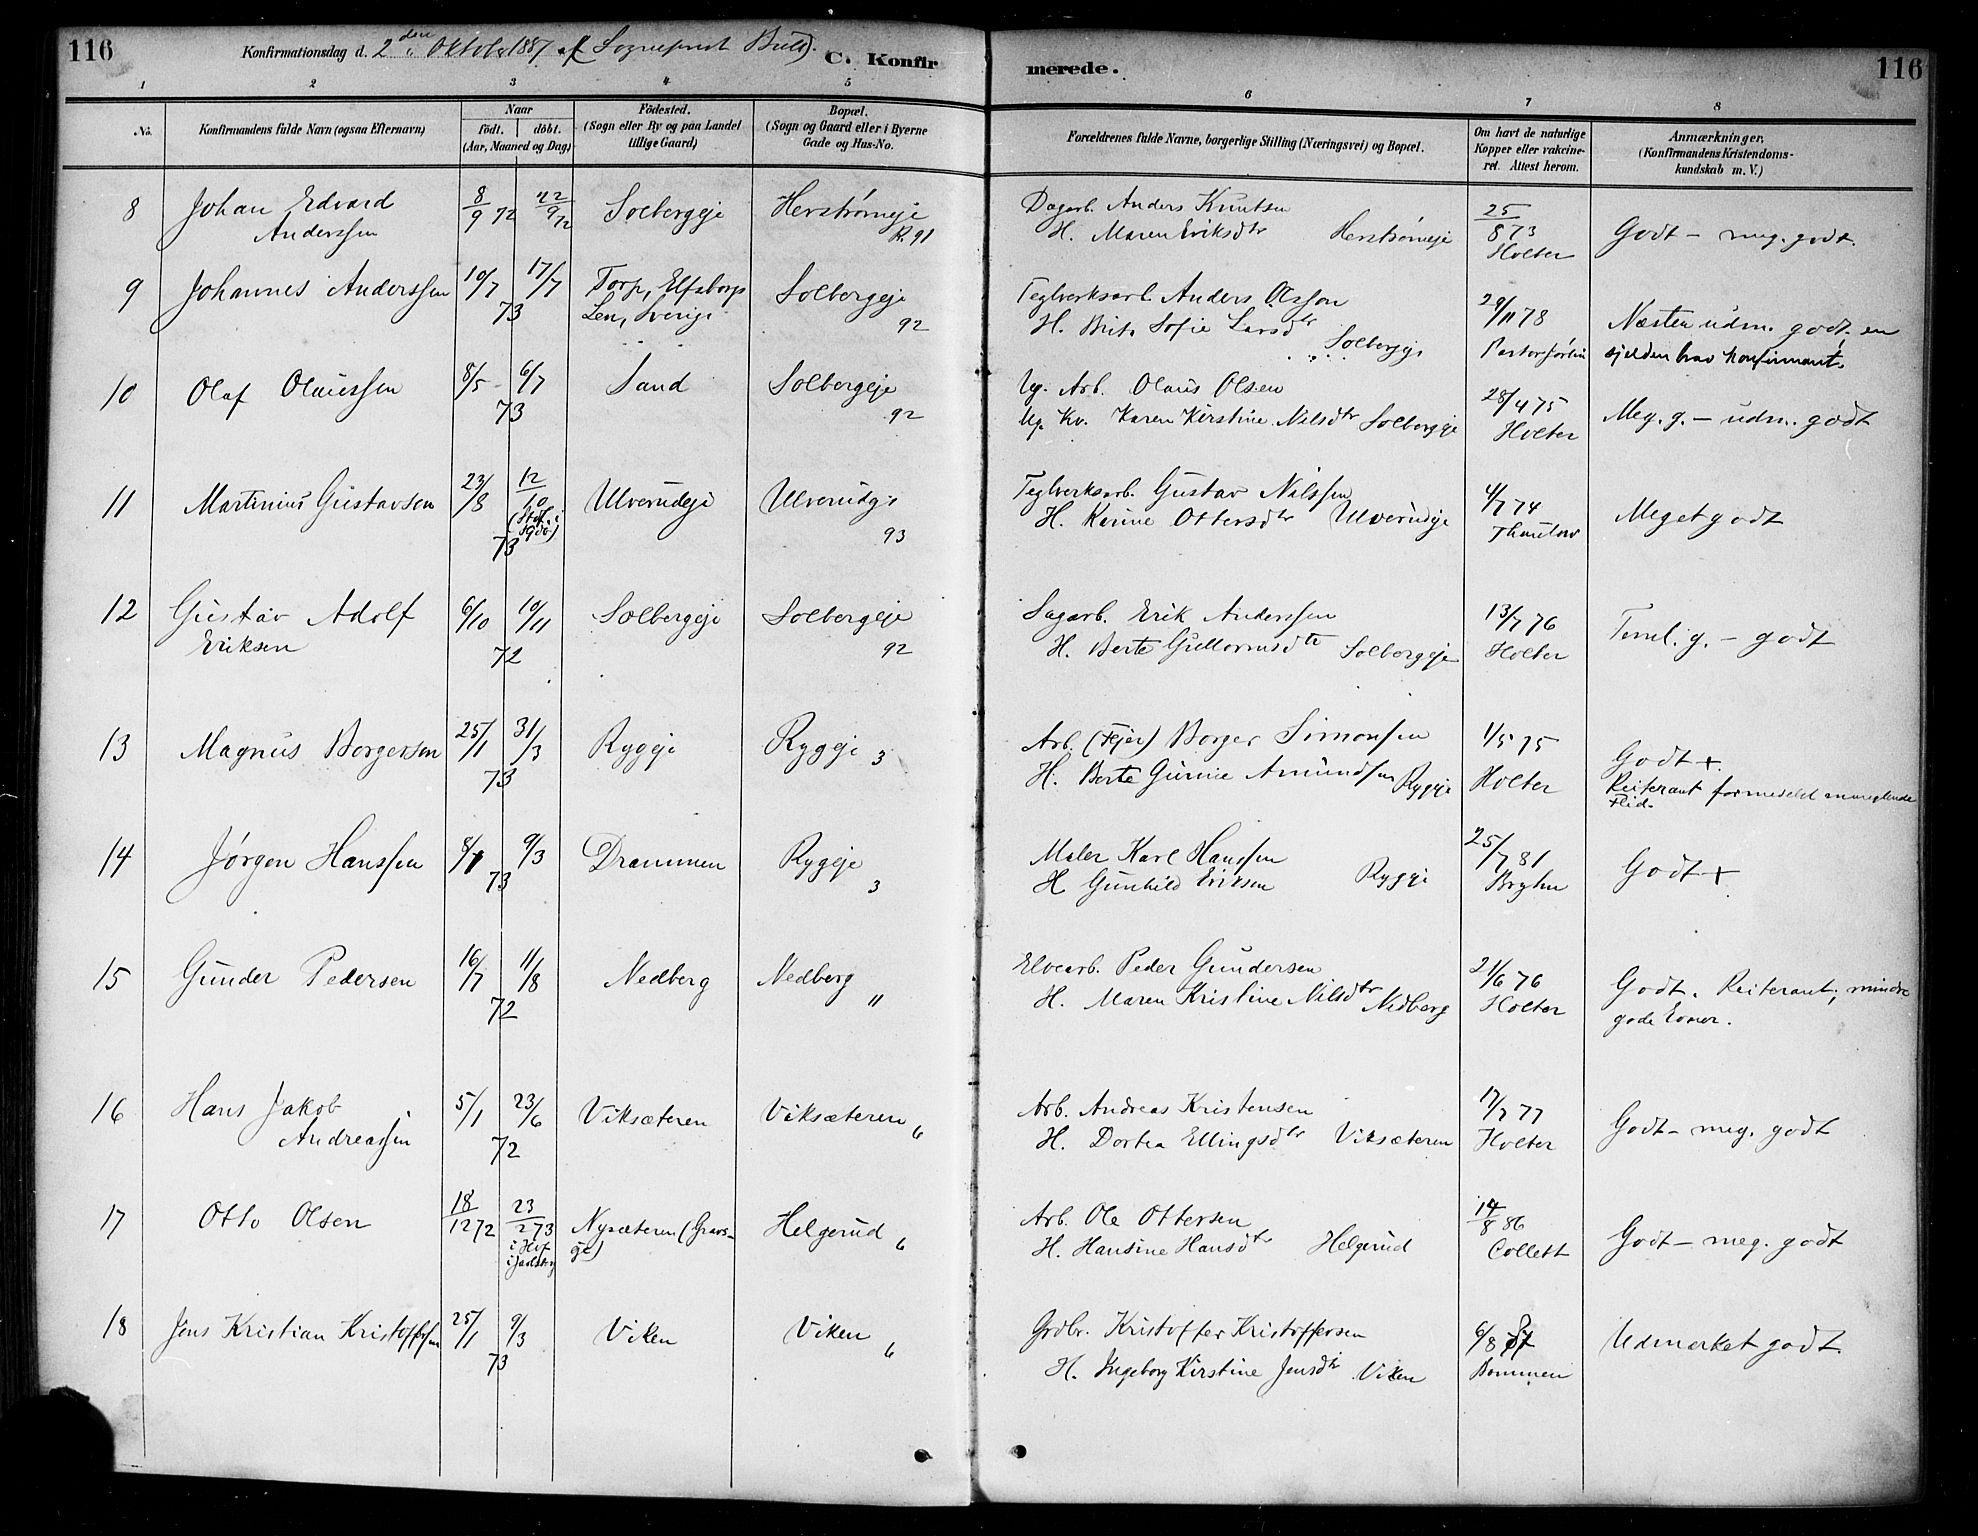 116 Konfirmationsdag d. 2 den Oktob 1887 af Sogneprest C. Konfir merede. 116
1 2 3 4 5 6 7 8
No. Konfirmandens fulde Navn (ogsaa Efternavn) Naar födt. döbt. (Aar, Maaned og Dag) Födested. (Sogn eller By og paa Landet tillige Gaard) Bopæl. (Sogn og Gaard eller i Byerne Gade og Hus-No. Forældrenes fulde Navne, borgerlige Stilling (Næringsvei) og Bopæl. Om havt de naturlige Kopper eller vakcine-ret. Attest herom. Anmærkninger, (Konfirmandens Kristendoms-kundskab m. V.)
8 Johan Edvard 8/9 72 22/9 72 Solbergeje Herstrømeje Dagarb. Anders Knutsen 25/8 73 Godt – meg. godt.
Anderssen R. 91 H. Maren Eriksdtr Herstrømeje Holter
9 Johannes Anderssen 10/7 17/7 Torp, Elfsborgs Solbergeje Teglverksarb. Anders Olsson 29/11 78 Næsten udm. godt, en
73 Len, Sverige 92 H. Brita Sofie Larsdtr Solbergeje sjelden brav konfirmant.
10 Olaf Olaussen 8/5 6/7 Sand Solbergeje Ug. Arb. Olaus Olsen 28/4 75 Meg. g. – udm. godt
73 92 Ug. Kv. Karen Kirstine Nilsdtr Solbergeje Holter
11 Martinius Gustavsen 23/8 12/10 Ulverudeje Ulverudeje Teglverksarb. Gustav Nilssen 4/7 74 Meget godt
73 93 H. Karine Ottersdtr Ulverudeje Thaulow
12 Gustav Adolf 6/10 10/11 Solbergeje Solbergeje Sagarb. Erik Anderssen 13/7 76 Teml. g. – godt
Eriksen 72 92 H. Berte Gullormsdtr Solbergeje Holter
13 Magnus Borgersen 25/1 31/3 Ryggeje Ryggeje 3 Arb. (Ejer) Borger Simonsen 1/5 75 Godt +.
73 H. Berte Gurine Amundsen Ryggeje Holter Reiterant formedelst manglende Flid.
14 Jørgen Hanssen 8/1 9/3 Drammen Ryggeje Maler Karl Hanssen 25/7 81 Godt +
73 3 H Gunhild Eriksen Ryggeje Bryhn
15 Gunder Pedersen 16/7 11/8 Nedberg Nedberg Elvearb. Peder Gundersen 21/6 76 Godt. Reiterant; mindre
72 " H. Maren Kristine Nilsdtr Nedberg Holter gode Evner.
16 Hans Jakob 5/1 23/6 Viksæteren Viksæteren 6 Arb. Andreas Kristensen 17/7 77 Godt – meg. godt
Andreassen 72 H. Dortea Ellingsdtr Viksæteren Holter
17 Otto Olsen 18/12 72 23/2 73 Nysæteren (Gravs- Helgerud 6 Arb. Ole Ottersen 14/8 86 Godt – meg. godt
i Hof i Jarlsberg eje) H. Hansine Hansdtr Helgerud Collett
18 Jens Kristian Kristoffersen 25/1 9/3 Viken Viken 6 Grdbr. Kristoffer Kristoffersen 6/8 Udmerket godt.
73 H. Ingeborg Kirstine Jensdtr Viken Bommen